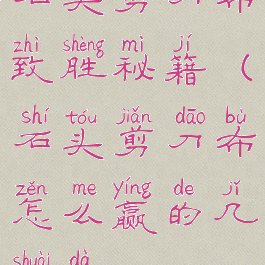 石头剪刀布
zhì shèng mì jí
致胜秘籍（
shí tóu jiǎn dāo bù
石头剪刀布
zěn me yíng de jǐ
怎么赢的几
shuài dà